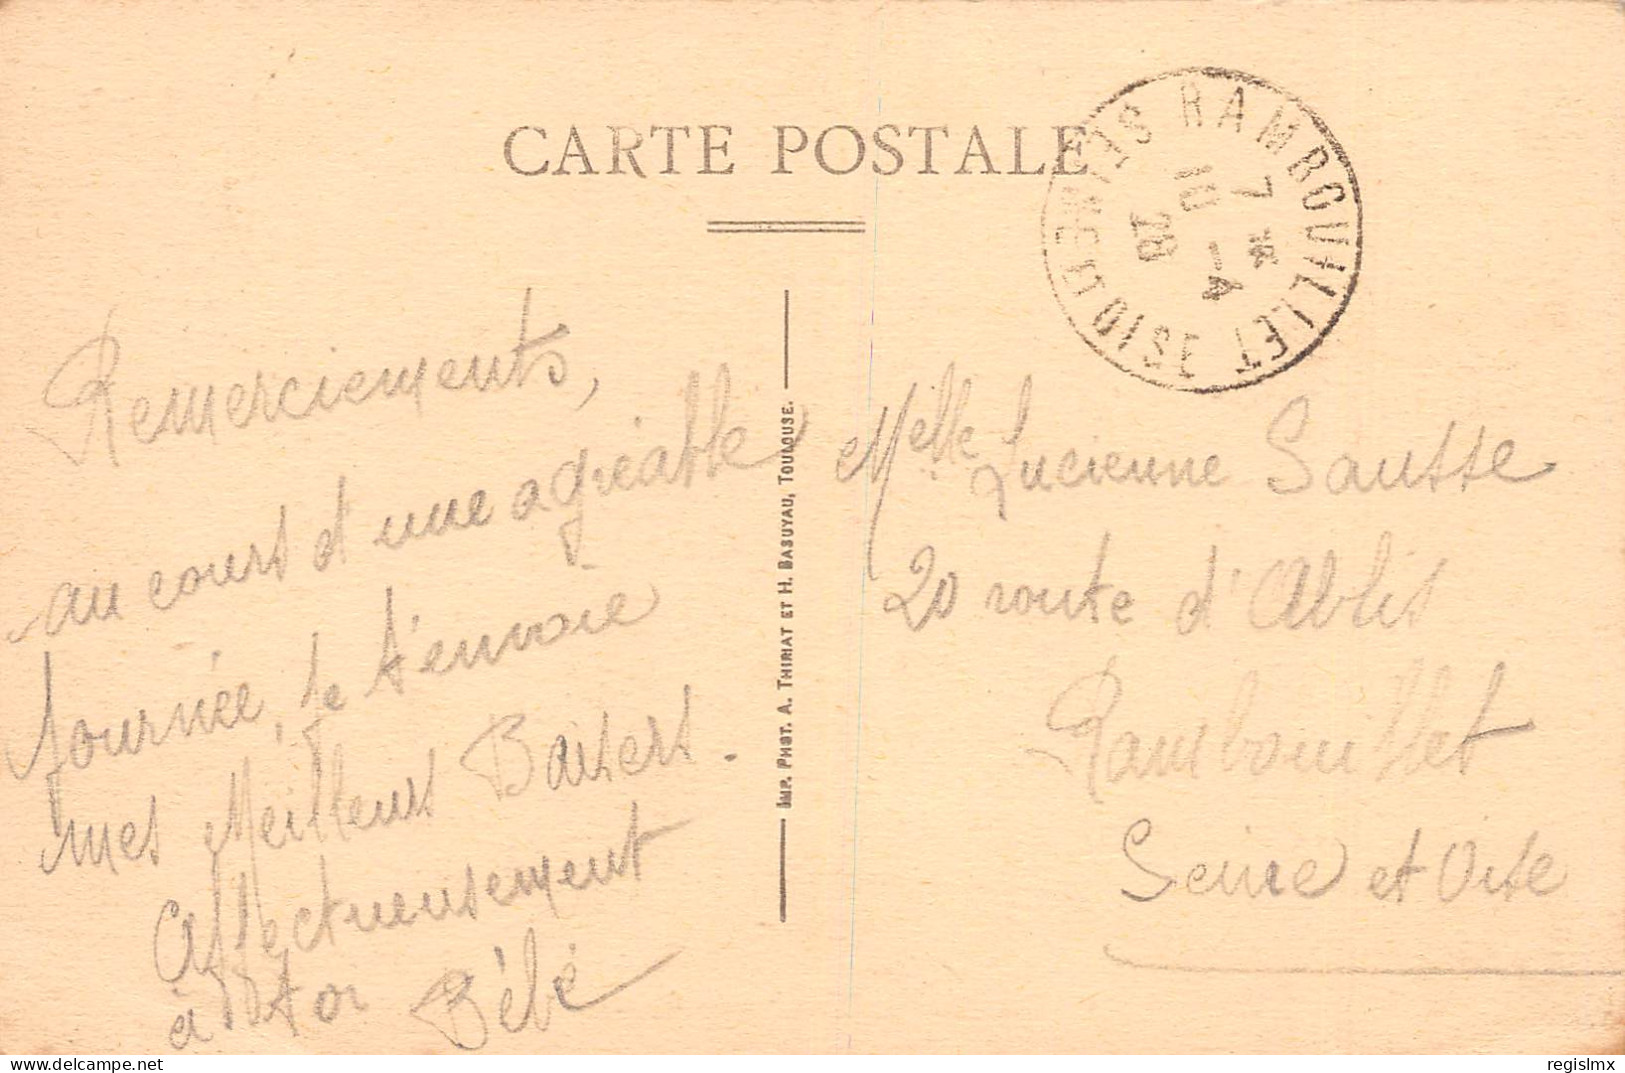 CARTE POSTALE
RAMBOUILLET
SEINE ET OISE
7 *
10 - 4
28
Remerciements,
au cours d'une agréable
journée, je t'envoie
mes Meilleurs Baisers.
Affectueusement
à toi Bébé
IMP. PHOT. A. THIRIAT ET H. BASUYAU, TOULOUSE.
Melle Lucienne Sausse
20 route d'Ablis
Rambouillet
Seine et Oise
delcampe.net
regislmx